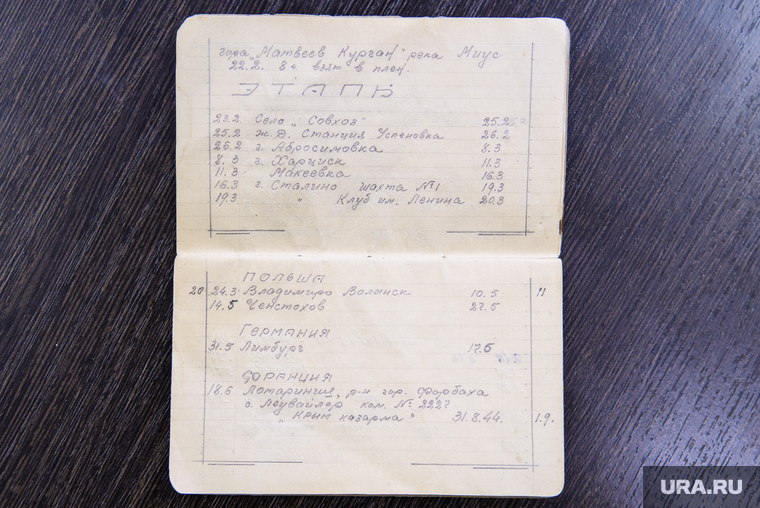 гора „Матвеев Курган" река Миус
22.2. 8ч. взят в плен.
ЭТАПЫ
23.2. Село „Совхоз" 25.2
25.2 ж.д. Станция Успеновка 26.2
26.2 г. Абросимовка 8.3
8.3 г. Харциск 11.3
11.3 Макеевка 16.3
16.3 г. Сталино шахта №1 19.3
19.3 " Клуб им. Ленина 20.3
ПОЛЬША
20 24.3 Владимиро Волынск 10.5 11
14.5 Ченстохов 27.5
ГЕРМАНИЯ
31.5 Лимбург 17.6
ФРАНЦИЯ
18.6 Лотарингия, р-н гор. Форбаха
с. Лоувайлер ком. № 222?
„Крып казарма" 31.8.44. 1.9.
URA.RU